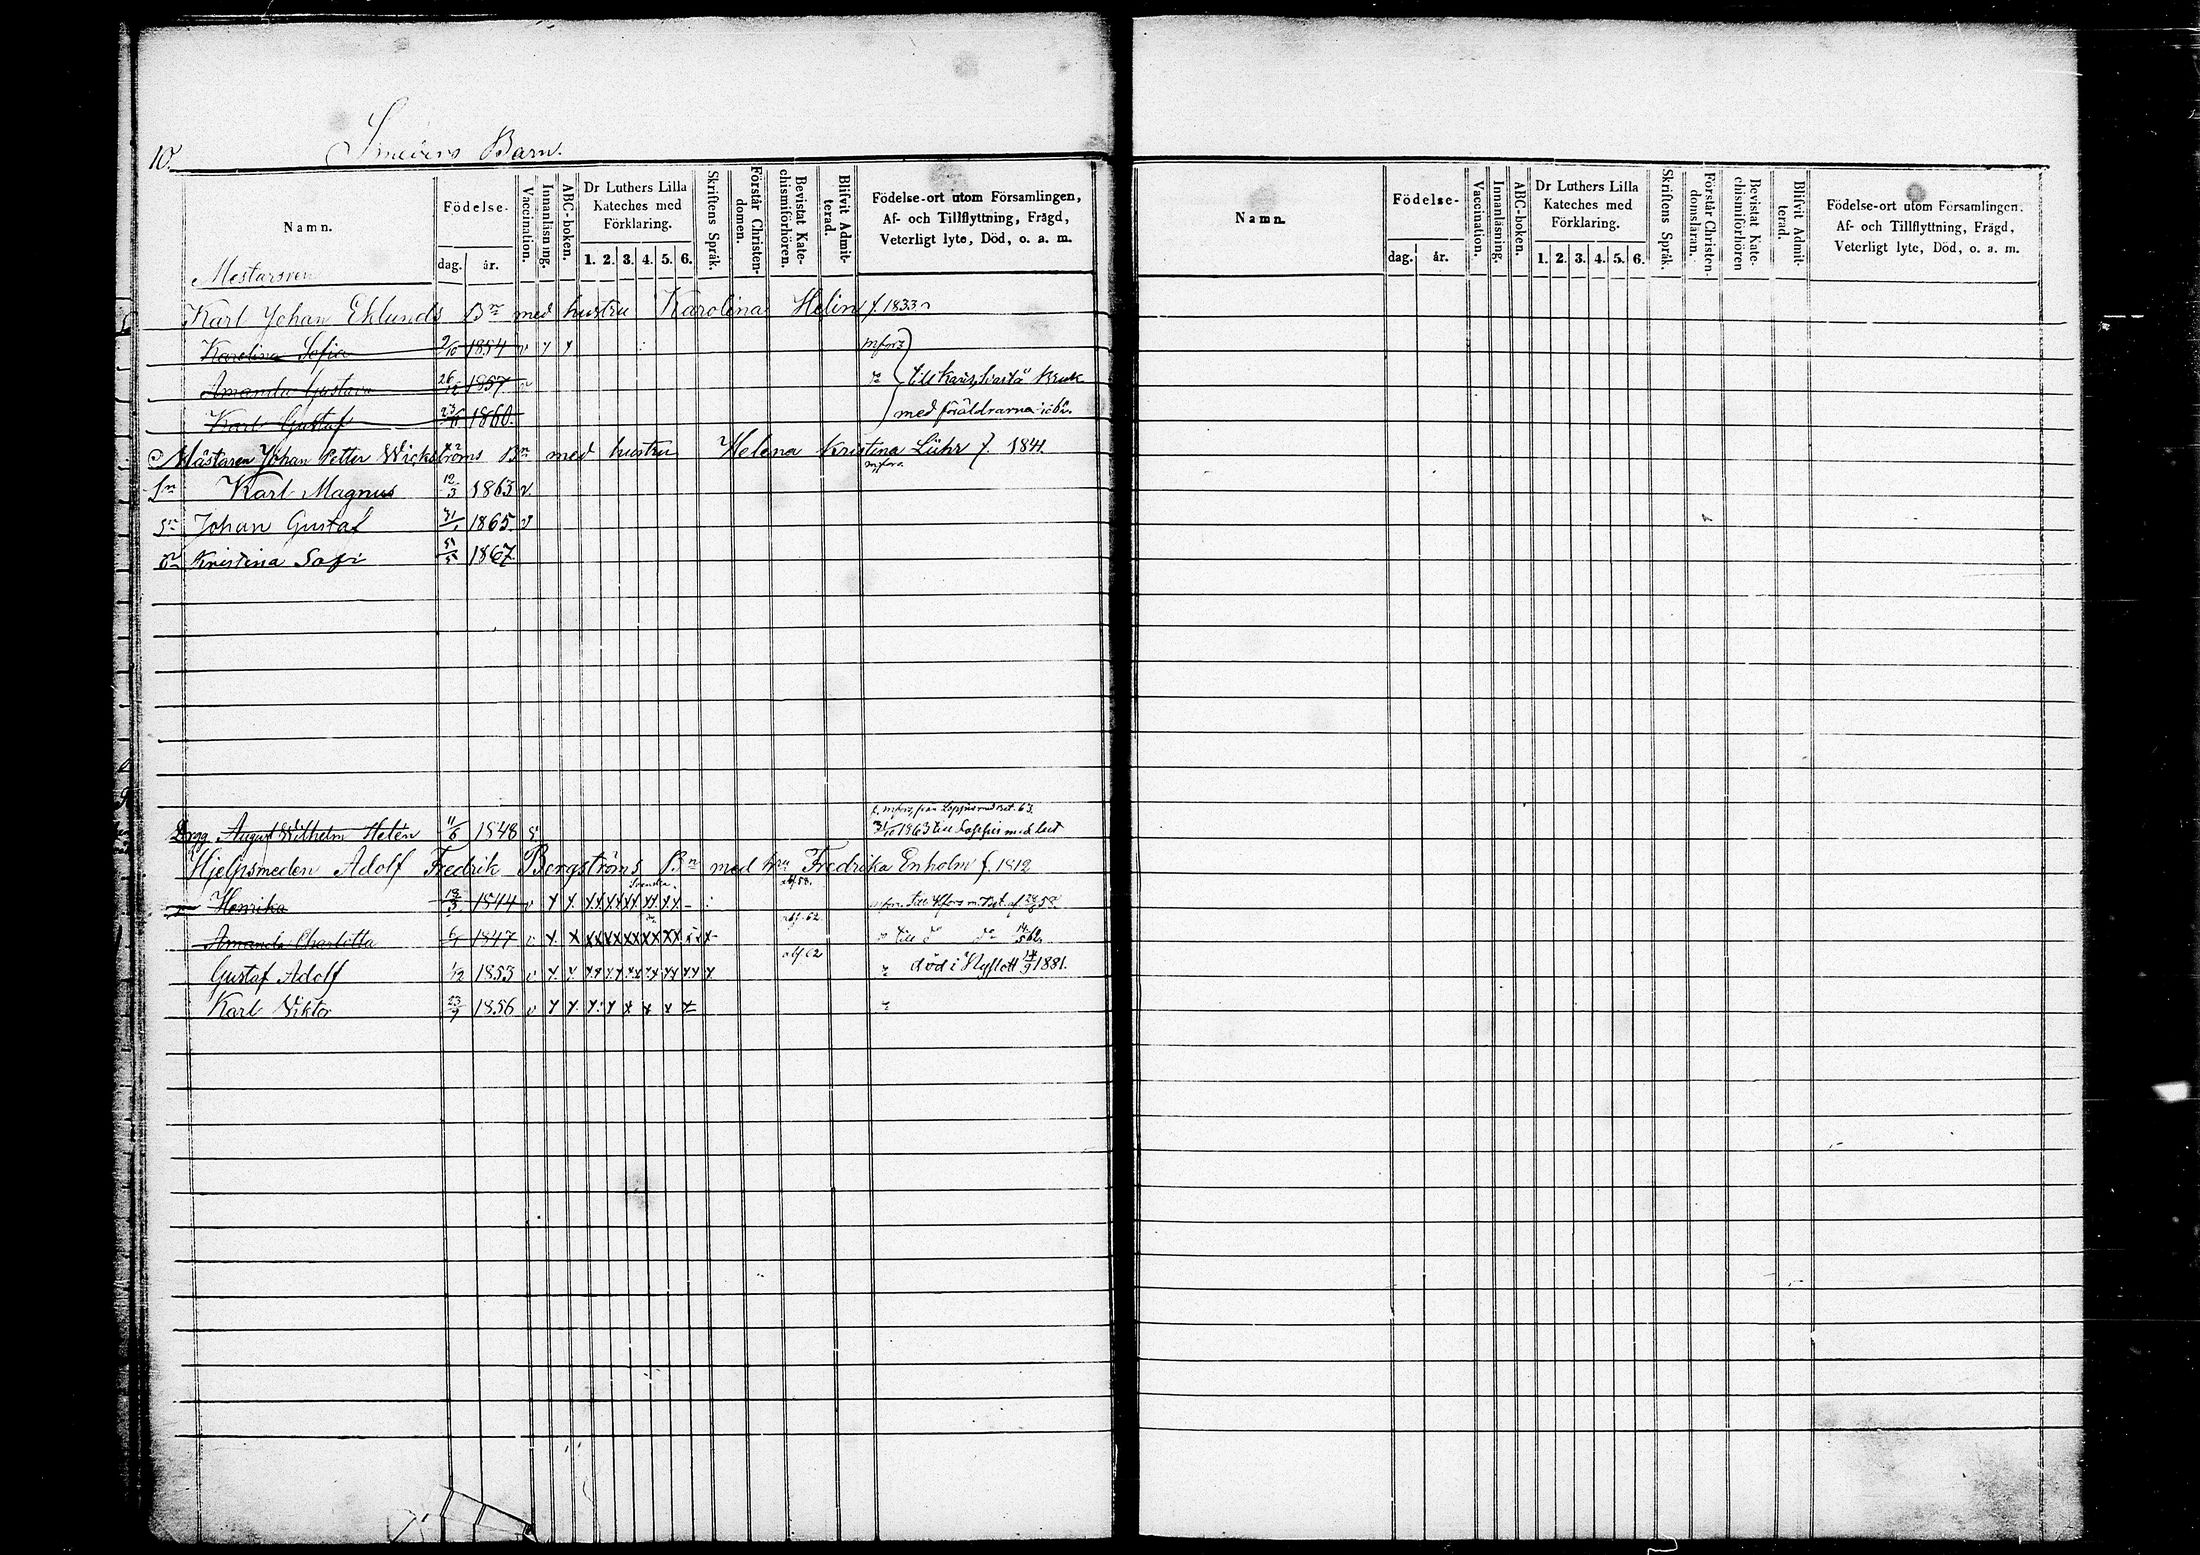 10.
Smeders Barn.
Namn.
Födelse-
dag. år.
Vaccination.
Innanläsning.
ABC-boken.
Dr Luthers Lilla Kateches med Förklaring.
1. 2. 3. 4. 5. 6.
Skriftens Språk.
Förstår Christendomen.
Bevistat Katechismiförhören.
Blifvit Admitterad.
Födelse-ort utom Församlingen,
Af- och Tillflyttning, Frägd,
Veterligt lyte, Död, o. a. m.
Mestarsven
Karl Johan Eklunds Bn med hustru Karolina Helin f. 1833
Karolina Sofia 2/10 1854 v
Amanda Gustava 26/12 1857 v till Karis, Svartå Bruk
Karl Gustaf 1860. med föräldrarna
Mästaren Johan Petter Wickströms Bn med hustru Helena Kristina Lühr f. 1841.
Sn Karl Magnus 12/3 1863 v.
Sn Johan Gustaf 31/1 1865. v
Kristina Sofi 5/5 1867.
Drgg August Wilhelm Helén 11/6 1848
Hjelpsmeden Adolf Fredrik Bergströms Bn med hru Fredrika Enholm f. 1812
Svenska.
Henrika 1844 v
Amanda Charlotta 6/1 1847 v
Gustaf Adolf 1/12 1853 v död i Nyslott 1881.
Karl Viktor 23/7 1856 v
Namn.
Födelse-
dag. år.
Vaccination.
Innanläsning.
ABC-boken.
Dr Luthers Lilla
Kateches med
Förklaring.
1. 2. 3. 4. 5. 6.
Skriftens Språk.
Förstår Christendomsläran.
Bevistat Katechismiförhören
Blifvit Admitterad.
Födelse-ort utom Församlingen.
Af- och Tillflyttning, Frägd,
Veterligt lyte, Död, o. a. m.